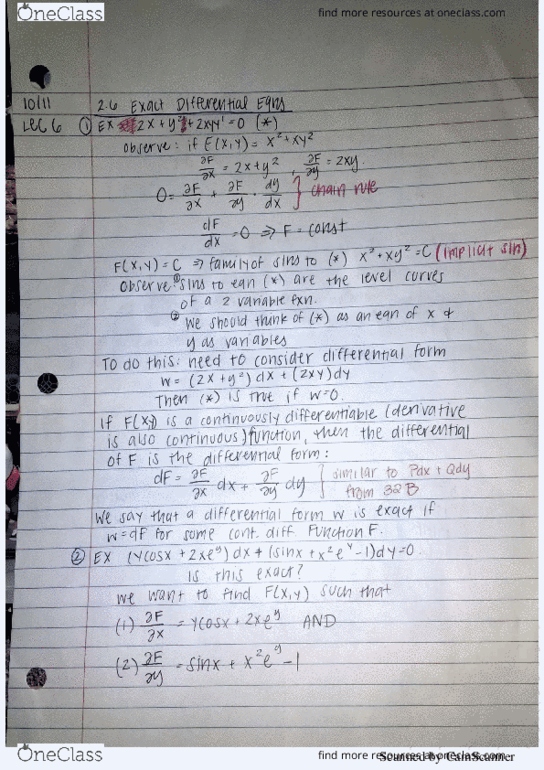 OneClass
find more resources at oneclass.com
10/11 2.6 Exact Differential Eqns
Lec 6 ① EX 2x + y² + 2xyy' = 0 (*)
observe: if F(x,y) = x² + xy²
∂F/∂x = 2x + y² , ∂F/∂y = 2xy.
0 = ∂F/∂x + ∂F/∂y · dy/dx } chain rule
dF/dx = 0 ⇒ F = const
F(x,y) = C ⇒ family of slns to (*) x² + xy² = C (implicit sln)
Observe: ① slns to eqn (*) are the level curves
of a 2 variable fxn.
② We should think of (*) as an eqn of x &
y as variables
To do this: need to consider differential form
w = (2x + y²)dx + (2xy)dy
Then (*) is true if w=0.
If F(xy) is a continuously differentiable (derivative
is also continuous) function, then the differential
of F is the differential form:
dF = ∂F/∂x dx + ∂F/∂y dy } similar to Pdx + Qdy
from 32B
We say that a differential form w is exact if
w = dF for some cont. diff. function F.
② EX (ycosx + 2xe^y)dx + (sinx + x²e^y - 1)dy = 0.
Is this exact?
We want to find F(x,y) such that
(1) ∂F/∂x = ycosx + 2xe^y AND
(2) ∂F/∂y = sinx + x²e^y - 1
OneClass
find more resources at oneclass.com
Scanned by CamScanner